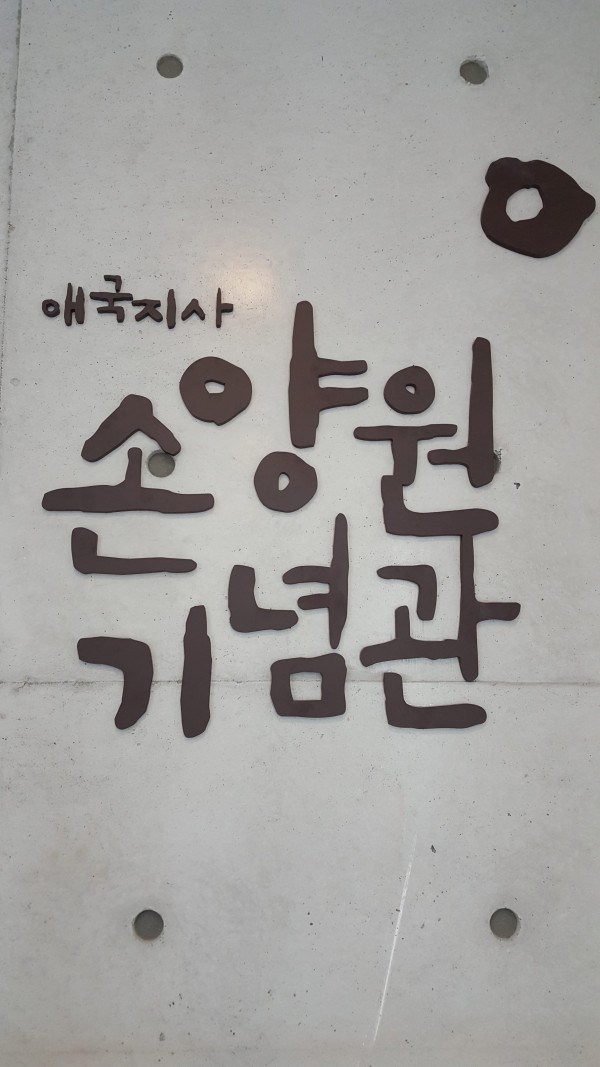 애국지사
손양원
기념관